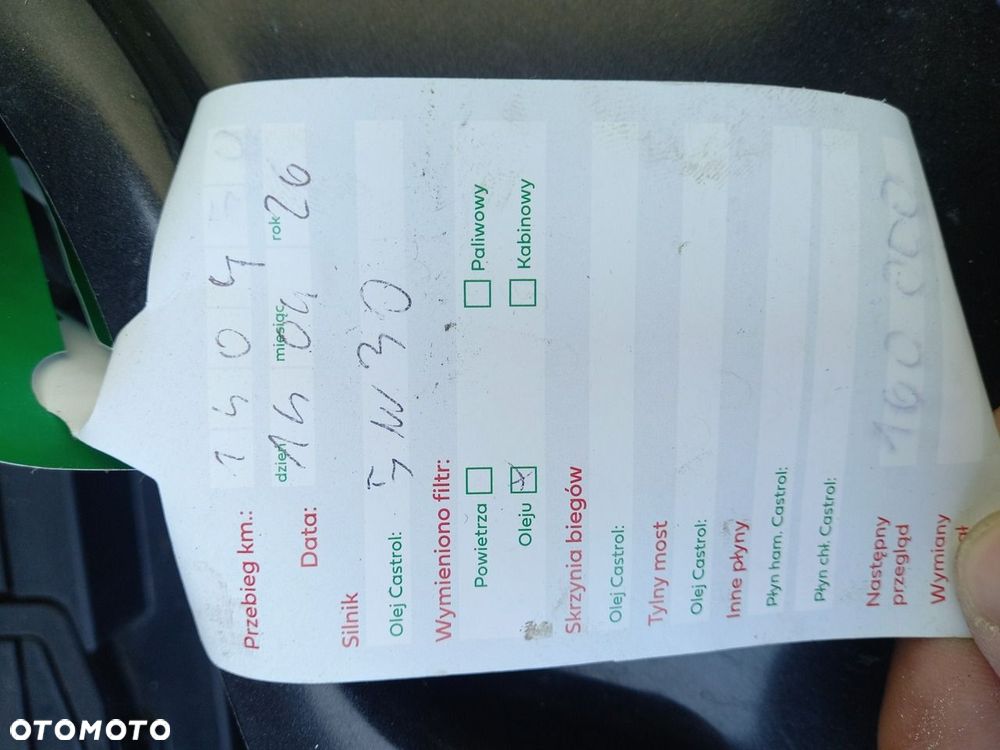 Przebieg km.:
dzień miesiąc rok
Data: 14 04 26
Silnik
Olej Castrol: 5W30
Wymieniono filtr:
Powietrza Paliwowy
Oleju Kabinowy
Skrzynia biegów
Olej Castrol:
Tylny most
Olej Castrol:
Inne płyny
Płyn ham. Castrol:
Płyn chł. Castrol:
Następny
przegląd
Wymiany
OTOMOTO